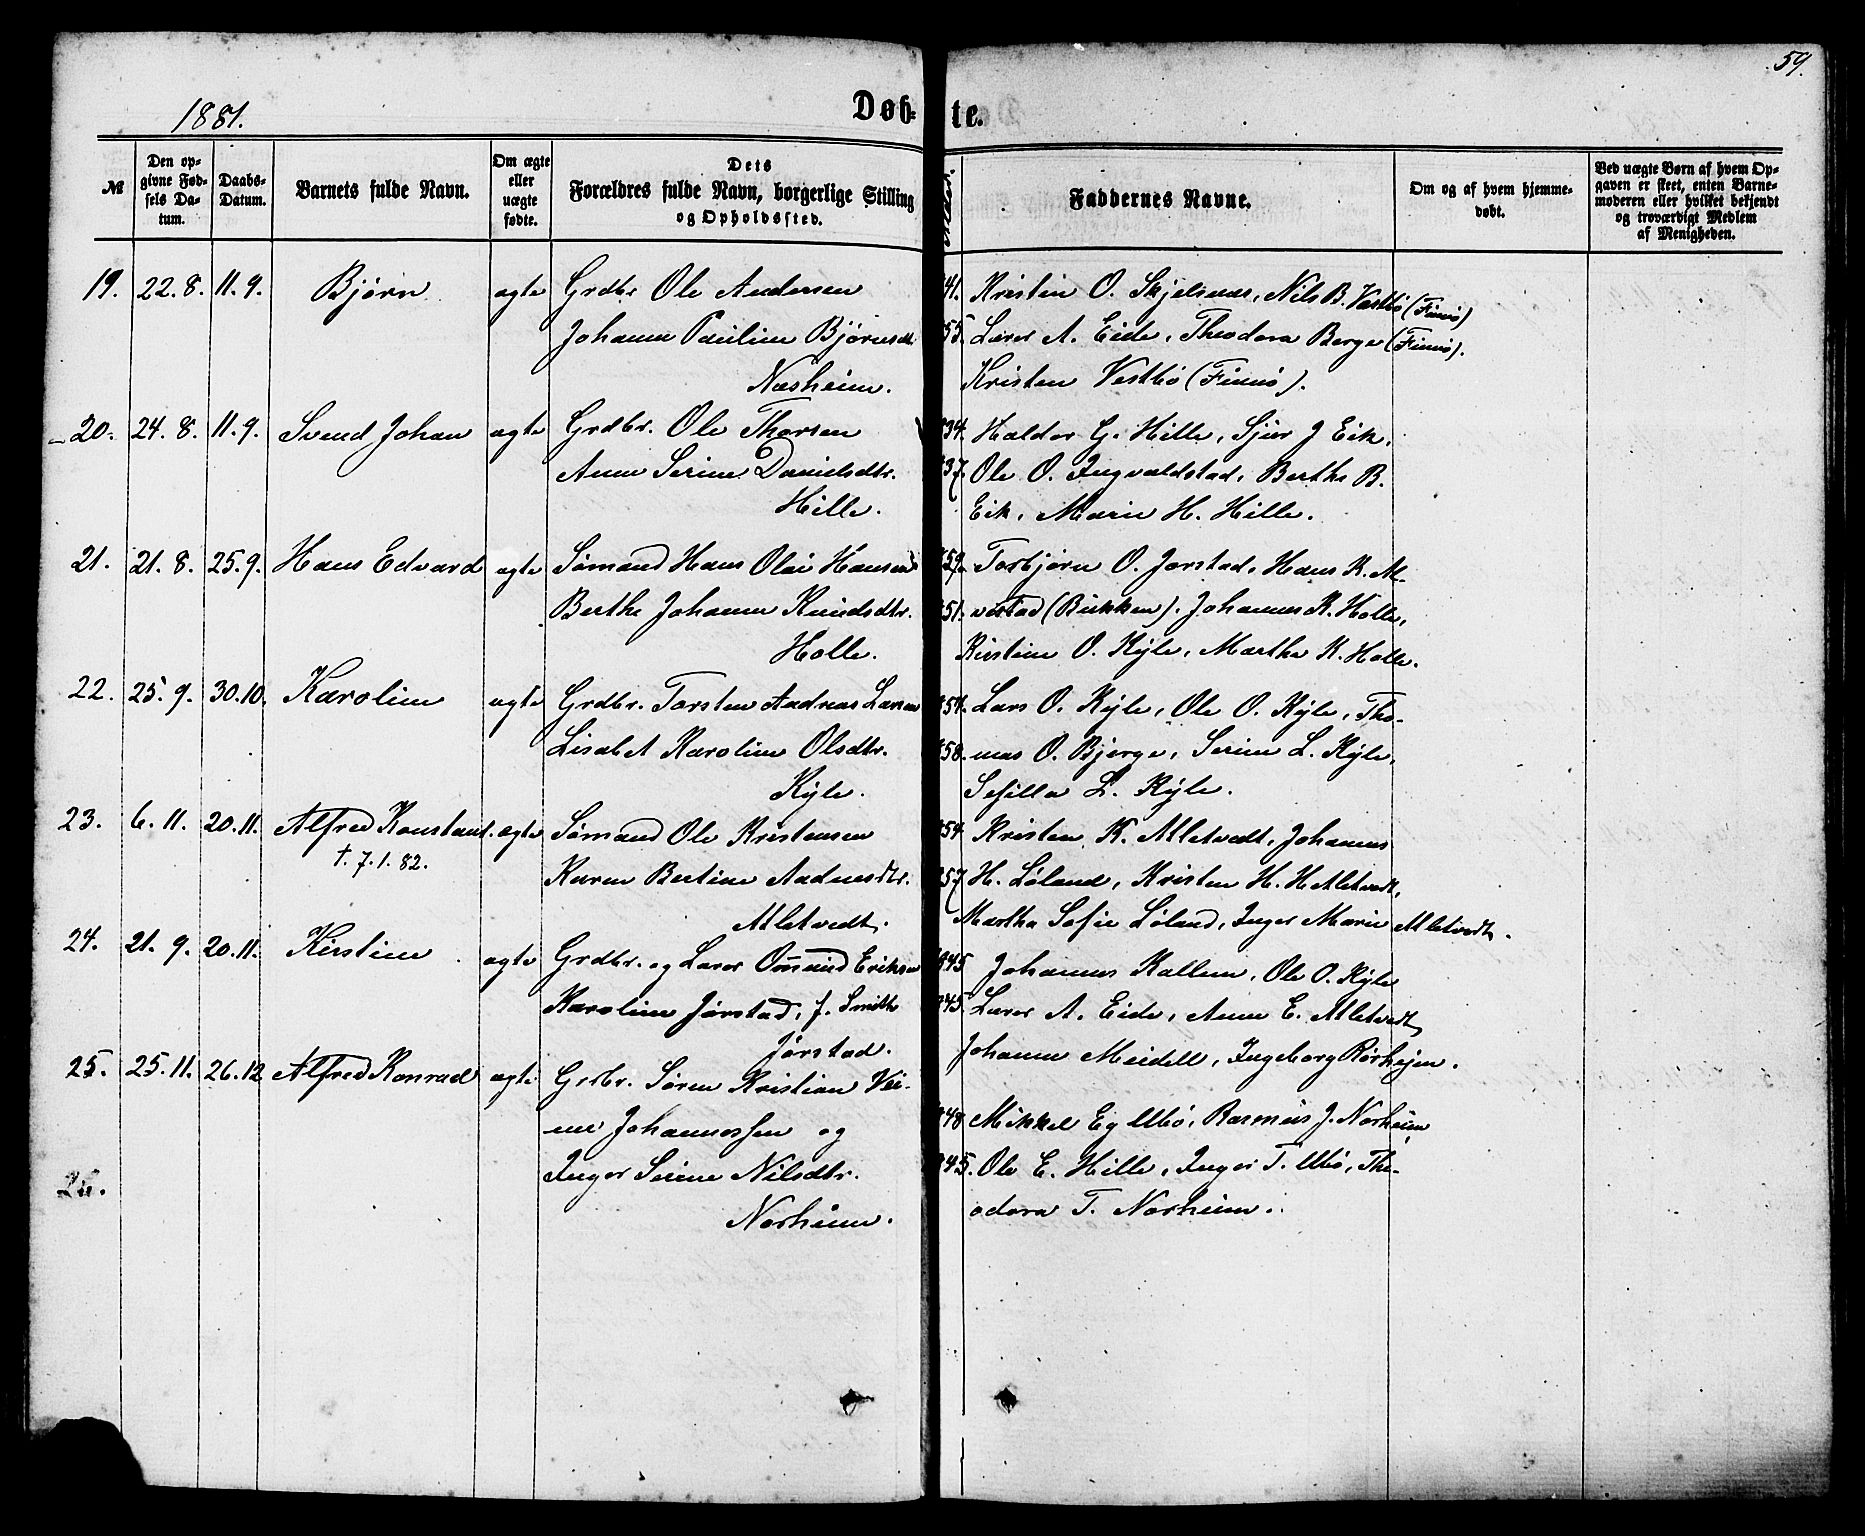 59.
1881.
Døb-
te.
№
Den op-
givne Fød-
sels Da-
tum.
Daabs-
Datum.
Barnets fulde Navn.
Om ægte
eller
uægte
fødte.
Dets
Forældres fulde Navn, borgerlige Stilling
og Opholdssted.
Faddernes Navne.
Om og af hvem hjemme-
døbt.
Ved uægte Børn af hvem Op-
gaven er skeet, enten Barne-
moderen eller hvilket bekjendt
og troværdigt Medlem
af Menigheden.
19. 22.8. 11.9. Bjørn ægte Grdbr Ole Andersen
Johanne Pauline Bjørnsdt
Næsheim.
41. Kristen O. Skjelsnæs, Nils B. Vestbø (Finnø)
55. Lærer A. Eide, Theodora Berge (Finnø).
Kristen Vestbø (Finnø).
20. 24.8. 11.9. Svend Johan ægte Grdbr. Ole Thorsen
Anne Serine Danielsdtr.
Hille.
34. Haldor G. Hille, Sjur J Eik,
37. Ole O. Ingvaldstad, Berthe B.
Eik, Marie H. Hille.
21. 21.8. 25.9. Hans Edvard ægte Sømand Hans Olai Hansen
Berthe Johanne Knudsdtr.
Holle.
59. Torbjørn O. Jørstad, Hans K.
51. (Bukken). Johannes K. Holle,
Kirstine O. Kyle, Marthe K. Holle.
22. 25.9. 30.10. Karoline ægte Grdbr. Torsten Andreas Larsen
Lisabet Karoline Olsdtr.
Kyle.
54. Lars O. Kyle, Ole O. Kyle, Tho-
58. mas O. Bjerge, Serine L. Kyle,
Sefilla L. Kyle.
23. 6.11. 20.11. Alfred Konstant. ægte Sømand Ole Kristensen
†. 7.1.82.
Karen Bertine Aadnesdtr.
Atletvedt.
54. Kristen K. Atletvedt, Johannes
57 H. Løland, Kristen H. H Atletvedt,
Martha Sofie Løland, Inger Marie Atletvedt.
24. 21.9. 20.11. Kirstine ægte Grdbr. og Lærer Omund Eriksen
Karoline Jørstad, f. Smith
Jørstad.
845 Johannes Kallem, Ole O. Kyle
45. Lærer A. Eide, Anne E. Atletvedt
Johanne Meidell, Ingeborg Rørhejen.
25. 25.11. 26.12 Alfred Konrad ægte Grdbr. Søren Kristian
Johannessen og
Inger Serine Nilsdtr.
Norheim.
48 Mikkel E Utbø, Rasmus J. Norheim,
45. Ole E. Hille, Inger T. Utbø, The-
odora T. Norheim.
26.